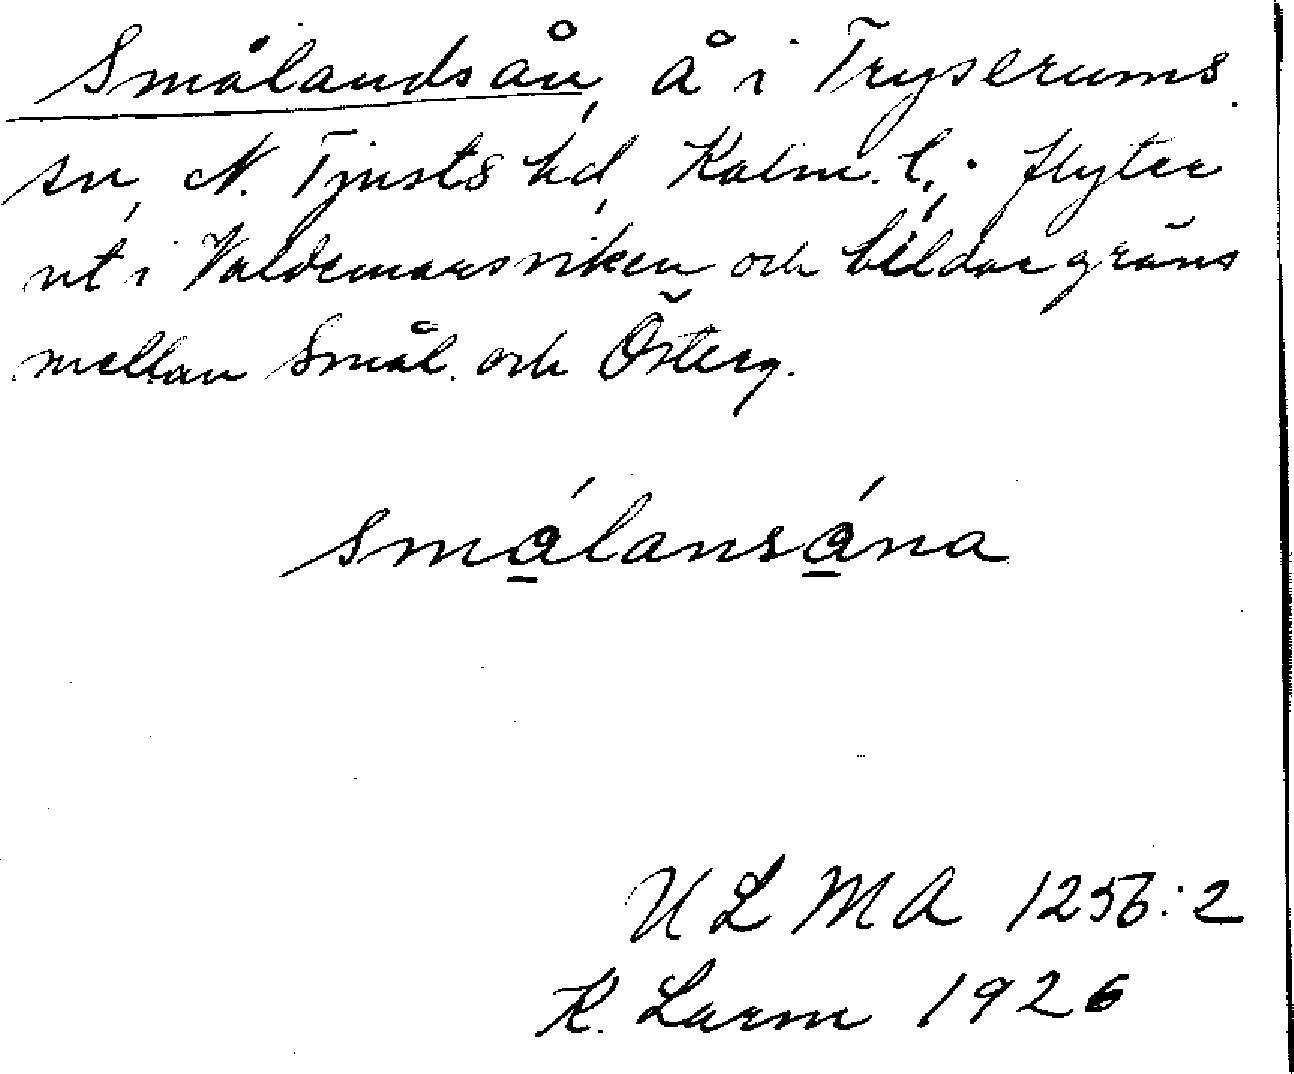 Smålandsån, å i Tryserums
sn, N. Tjusts hd, Kalm. l.; flyter
ut i Valdemarsviken och bildar gräns
mellan Smål. och Österg.
smálansána
ULMA 1256:2
K. Larm 1926